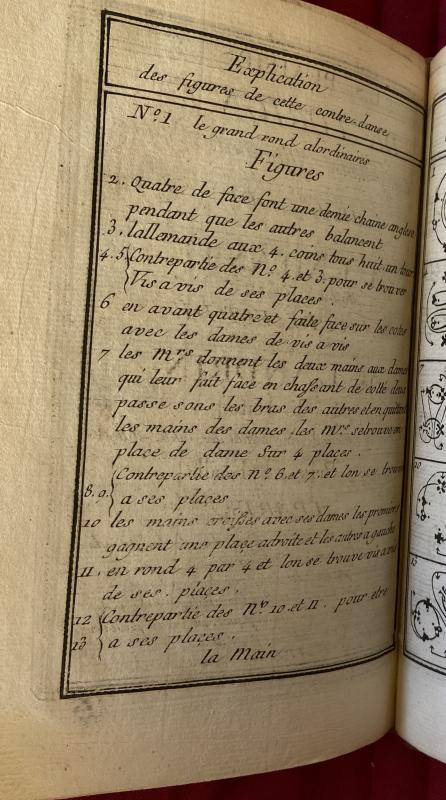 Explication
des figures de cette contre-danse
No. 1 le grand rond alordinaires
Figures
2. quatre de face font une demie chaine angloise
pendant que les autres balancent
3. lallemande aux 4. coins tous huit un tour
4. 5 Contrepartie des No. 4. et 3. pour se trouver
Vis a vis de ses places.
6 en avant quatre et faite face sur les cotes
avec les dames de vis a vis
7 les Mrs. donnent les deux mains aux dames
qui leur fait face en chassant de cotté deux
passe sous les bras des autres et en quittant
les mains des dames les Mrs. se trouve en
place de dame sur 4 places.
8. 9. Contrepartie des No. 6. et 7. et lon se trouve
a ses places
10 les mains croisses avec ses dames les premiers
gagnent une place a droite et les autres a gauche
11. en rond 4 par 4 et lon se trouve vis a vis
de ses places.
12 Contrepartie des No. 10. et 11. pour etre
13 a ses places.
la Main